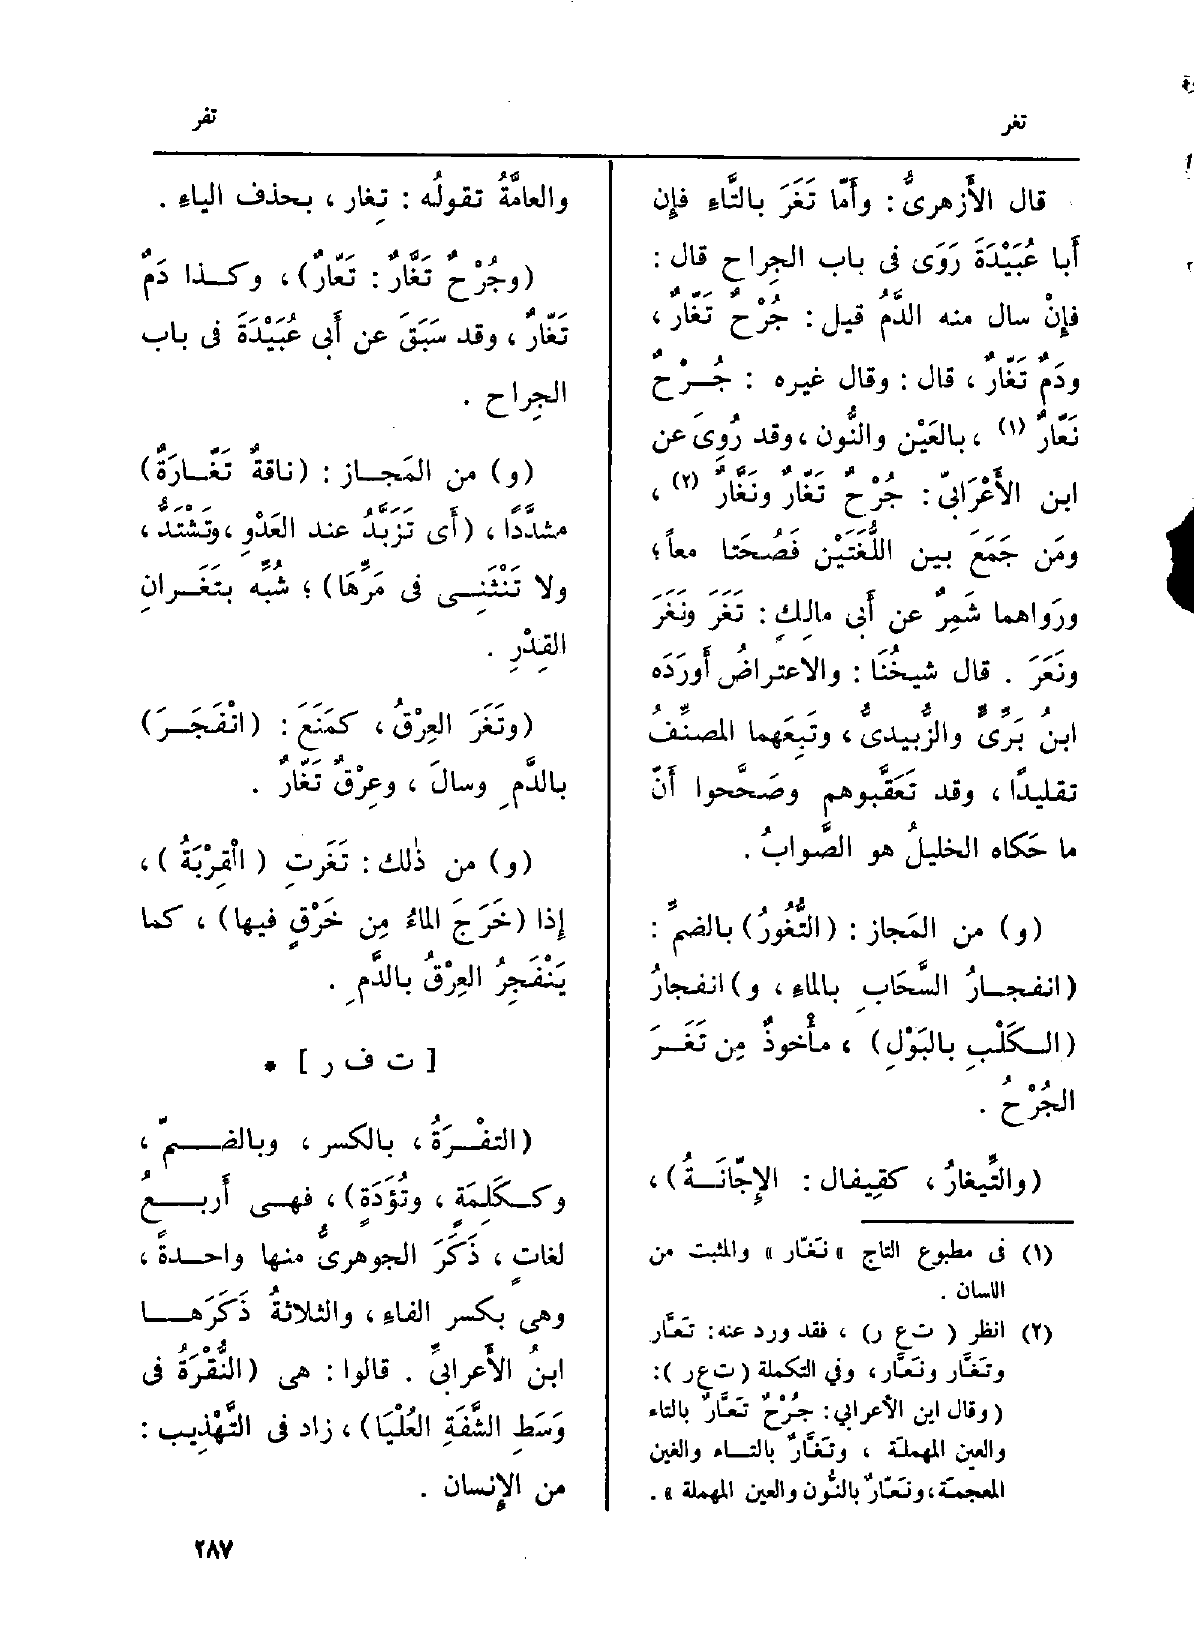 تغر
تفر
قال الأَزهرىُّ : وأَمّا تَغَرَ بالتَّاءِ فإِن
أَبا عُبَيْدَةَ رَوَى فى باب الجِراحِ قال :
فإِنْ سال منه الدَّمُ قيل : جُرْحٌ تَغّارٌ ،
ودَمٌ تَغّارٌ ، قال : وقال غيره : جُــرْحٌ
نَعّارٌ (١) ، بالعَيْن والنُّون ، وقد رُوِىَ عن
ابن الأَعْرَابىّ : جُرْحٌ تَغّارٌ ونَغَّارٌ (٢) ،
ومَن جَمَعَ بين اللُّغَتَيْن فَصُحَتا معاً ؛
ورَواهما شَمِرٌ عن أَبى مالِكٍ : تَغَرَ ونَغَرَ
ونَعَرَ . قال شيخُنَا : والاعتراضُ أَورَدَه
ابنُ بَرِّىٌّ والزُّبيدىُّ ، وتَبِعَهما المصنِّفُ
تقليدًا ، وقد تَعَقَّبوهم وصَحَّحوا أَنّ
ما حَكاه الخليلُ هو الصَّوابُ .
(و) من المَجاز : (التُّغُورُ) بالضمِّ :
(انفجـارُ السَّحَابِ بالماءِ ، و) انفجارُ
(الـكَلْبِ بالبَوْلِ) ، مأْخوذٌ مِن تَغَـرَ
الجُرْحُ .
(والتِّيغارُ ، كقِيفال : الإِجّانَــةُ) ،
(١) فى مطبوع التاج « تَغّار » والمثبت من
اللسان .
(٢) انظر ( ت ع ر) ، فقد ورد عنه : تَعَّار
وتَغَّار ونَعَّار ، وفي التكملة ( ت ع ر ) :
( وقال ابن الأعرابي : جُرْحٌ تَعَّارٌ بالتاء
والعين المهملة ، وتَغَّارٌ بالتــاء والغين
المعجمة ، ونَعّارٌ بالنُّون والعين المهملة » .
والعامَّةُ تقولُه : تِغار ، بحذف الياءِ .
(وجُرْحٌ تَغَّارٌ : تَعّارٌ) ، وكــذا دَمٌ
تَغّارٌ ، وقد سَبَقَ عن أَبى عُبَيْدَةَ فى باب
الجِراح .
(و) من المَجـاز : (ناقةٌ تَغّـارَةٌ)
مشدَّدًا ، (أَى تَزَبَّدُ عند العَدْوِ ، وتَشْتَدُّ ،
ولا تَنْثَنِــى فى مَرِّهَا) ؛ شُبِّه بتَغَــرانِ
القِدْرِ .
(وتَغَرَ العِرْقُ ، كمَنَعَ : (انْفَجَـرَ)
بالدَّمِ وسالَ ، وعِرْقٌ تَغّارٌ .
(و) من ذٰلك : تَغَرتِ ( الْقِرْبَةُ ) ،
إِذا (خَرَجَ الماءُ مِن خَرْقٍ فيها) ، كما
يَنْفَجِرُ العِرْقُ بالدَّمِ .
[ ت ف ر ] *
(التفْـرَةُ ، بالكسر ، وبالضــمّ ،
وكـكَلِمَةٍ ، وتُؤَدَةٍ) ، فهـى أَربــعُ
لغاتٍ ، ذَكَرَ الجوهرىُّ منها واحـدةً ،
وهى بكسر الفاءِ ، والثلاثةُ ذَكَرَهــا
ابنُ الأَعرابىِّ . قالوا : هى (النُّقْرَةُ فى
وَسَطِ الشَّفَةِ العُلْيَا) ، زاد فى التَّهْذِيب :
من الإِنسان .
٢٨٧